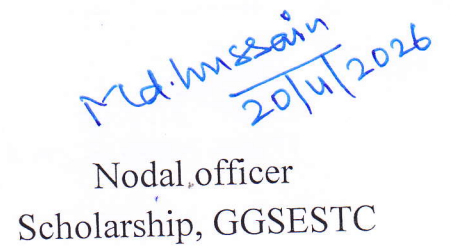 Md. Hussain
20/4/2026
Nodal officer
Scholarship, GGSESTC